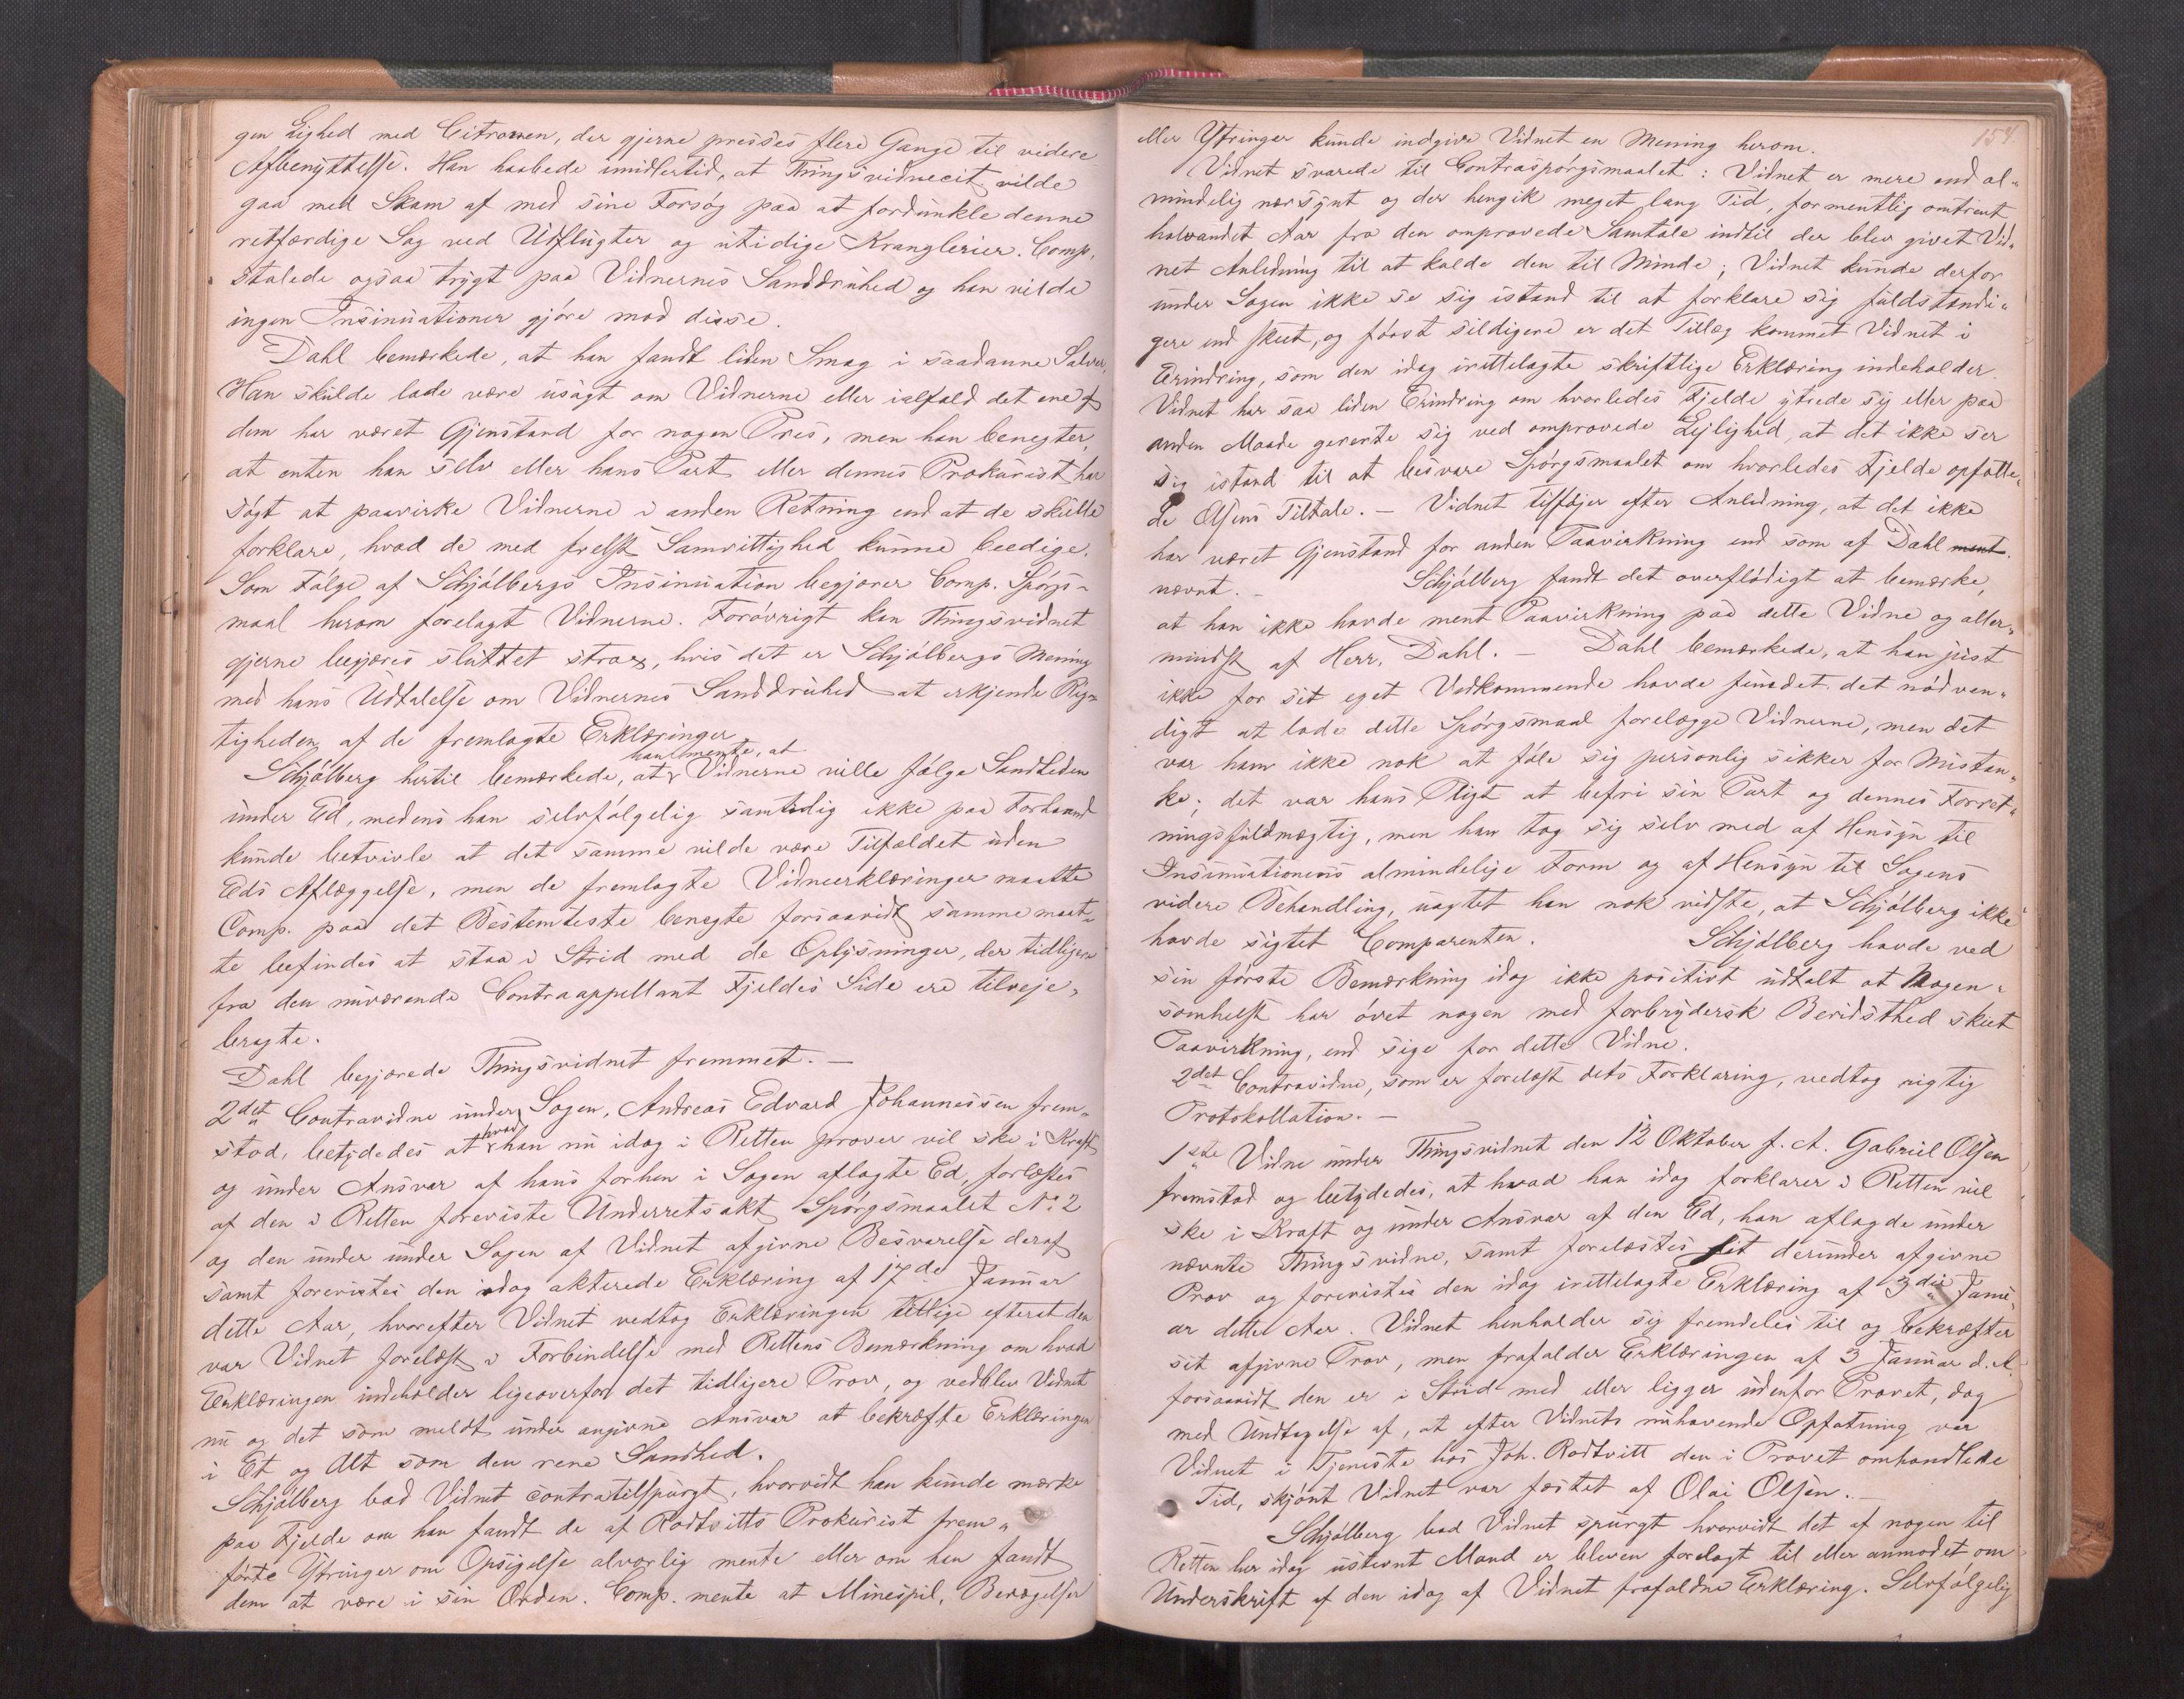 gen Lighed med Citronen, der gjerne presses flere Gange til videre
Afbenyttelse. Han haabede imidlertid, at Thingsvidnecit vilde
gaa med Skam af med sine Forsøg paa at fordunkle denne
retfærdige Sag ved Udflugter og utidige Kranglerier. Comp.
stolede ogsaa trygt paa Vidnernes Sanddruhed og han vilde
ingen Insinuationer gjøre mod disse.
Dahl bemærkede, at han fandt liden Smag i saadanne Salver,
Han skulde lade være usagt om Vidnerne eller ialfald det ene af
dem har været Gjenstand for nogen Pres, men han benegter,
at enten han selv eller hans Part eller dennes Prokurist har
søgt at paavirke Vidnerne i anden Retning end at de skulle
forklare, hvad de med frelst Samvittighed kunne beedige.
Som Følge af Schjølbergs Insinuation begjærer Comp. Spørgs-
maal herom forelagt Vidnerne. Forøvrigt kan Thingsvidnet
gjerne begjæres sluttet strax, hvis det er Schjølbergs Mening
med hans Udtalelse om Vidnernes Sanddruhed at erkjende Rig-
tigheden af de fremlagte Erklæringer
Schjølberg hertil bemærkede, at han mente, at Vidnerne ville følge Sandheden
under Ed, medens han selvfølgelig samtidig ikke paa Forhaand
kunde betvivle at det samme vilde være Tilfældet uden
Eds Aflæggelse, men de fremlagte Vidneerklæringer maatte
Comp. paa det Bestemteste benegte forsaavidt samme maat-
te befindes at staa i Strid med de Oplysninger, der tidligere
fra den nuværende Contraappellant Fjeldes Side ere tilveje-
bragte.
Dahl begjærede Thingsvidnet fremmet. —
2det Contravidne under Sagen, Andreas Edvard Johannessen frem-
stod, betydedes at hvad han nu idag i Retten prover vil ske i Kraft
og under Ansvar af hans forhen i Sagen aflagte Ed, forlæstes
af den i Retten foreviste Underretsakt Spørgsmaalet No 2
og den under under Sagen af Vidnet afgivne Besvarelse deraf
samt forevistes den idag akterede Erklæring af 17de Januar
dette Aar, hvorefter Vidnet vedtog Erklæringen tillige efterat den
var Vidnet forelæst i Forbindelse med Rettens Bemærkning om hvad
Erklæringen indeholder ligeoverfor det tidligere Prov, og vedblev Vidnet
nu og det som meldt under angivne Ansvar at bekræfte Erklæringen
i Et og Alt som den rene Sandhed.
Schjølberg bad Vidnet contratilspurgt, hvorvidt han kunde mærke
paa Fjelde om han fandt de af Rodtvitts Prokurist frem-
førte Ytringer om Opsigelse alvorlig mente eller om han fandt
dem at være i sin Orden. Comp. mente at Minespil, Bevægelser
154.
eller Ytringer kunde indgive Vidnet en Mening herom.
Vidnet svarede til Contraspørgsmaalet: Vidnet er mere end al-
mindelig nærsynt og der hengik meget lang Tid, formentlig omtrent
halvandet Aar fra den omprovede Samtale indtil der blev givet Vid-
net Anledning til at kalde den til Minde; Vidnet kunde derfor
under Sagen ikke se sig istand til at forklare sig fuldstændi-
gere end skeet, og først sildigere er det Tillæg kommet Vidnet i
Erindring, som den idag irettelagte skriftlige Erklæring indeholder.
Vidnet har saa liden Erindring om hvorledes Fjelde ytrede sig eller paa
anden Maade gererte sig ved omprovede Lejlighed, at det ikke ser
sig istand til at besvare Spørgsmaalet om hvorledes Fjelde opfatte-
de Olsens Tiltale. — Vidnet tilføjer efter Anledning, at det ikke
har været Gjenstand for anden Paavirkning end som af Dahl ment
nævnt. — Schjølberg fandt det overflødigt at bemærke,
at han ikke havde ment Paavirkning paa dette Vidne og aller-
mindst af Herr. Dahl. — Dahl bemærkede, at han just
ikke for sit eget Vedkommende havde fundet det nødven-
digt at lade dette Spørgsmaal forelægge Vidnerne, men det
var ham ikke nok at føle sig personlig sikker for Mistan-
ke; det var hans Pligt at befri sin Part og dennes Forret-
ningsfuldmægtig, men han tog sig selv med af Hensyn til
Insinuationens almindelige Form og af Hensyn til Sagens
videre Behandling, uagtet han nok vidste, at Schjølberg ikke
havde sigtet Comparenten. Schjølberg havde ved
sin første Bemærkning idag ikke positivt udtalt at Nogen-
somhelst har øvet nogen med forbrydersk Bevidsthed skeet
Paavirkning, end sige for dette Vidne.
2det Contravidne, som er forelæst dets Forklaring, vedtog rigtig
Protokollation. —
1ste Vidne under Thingsvidnet den 12 Oktober f. A. Gabriel Olsen
fremstod og betydedes, at hvad han idag forklarer i Retten vil
ske i Kraft og under Ansvar af den Ed, han aflagde under
nævnte Thingsvidne, samt forelæstes sit derunder afgivne
Prov og forevistes den idag irettelagte Erklæring af 3die Janu-
ar dette Aar. Vidnet henholder sig fremdeles til og bekræfter
sit afgivne Prov, men frafalder Erklæringen af 3 Januar d. A.
forsaavidt den er i Strid med eller ligger udenfor Provet, dog
med Undtagelse af, at efter Vidnets nuhavende Opfatning var
Vidnet i Tjeneste hos Joh. Rodtvitt den i Provet omhandlede
Tid, skjønt Vidnet var fæstet af Olai Olsen. —
Schjølberg bad Vidnet spurgt hvorvidt det af nogen til
Retten her idag ustevnt Mand er bleven forelagt til eller anmodet om
Underskrift af den idag af Vidnet frafaldne Erklæring. Selvfølgelig